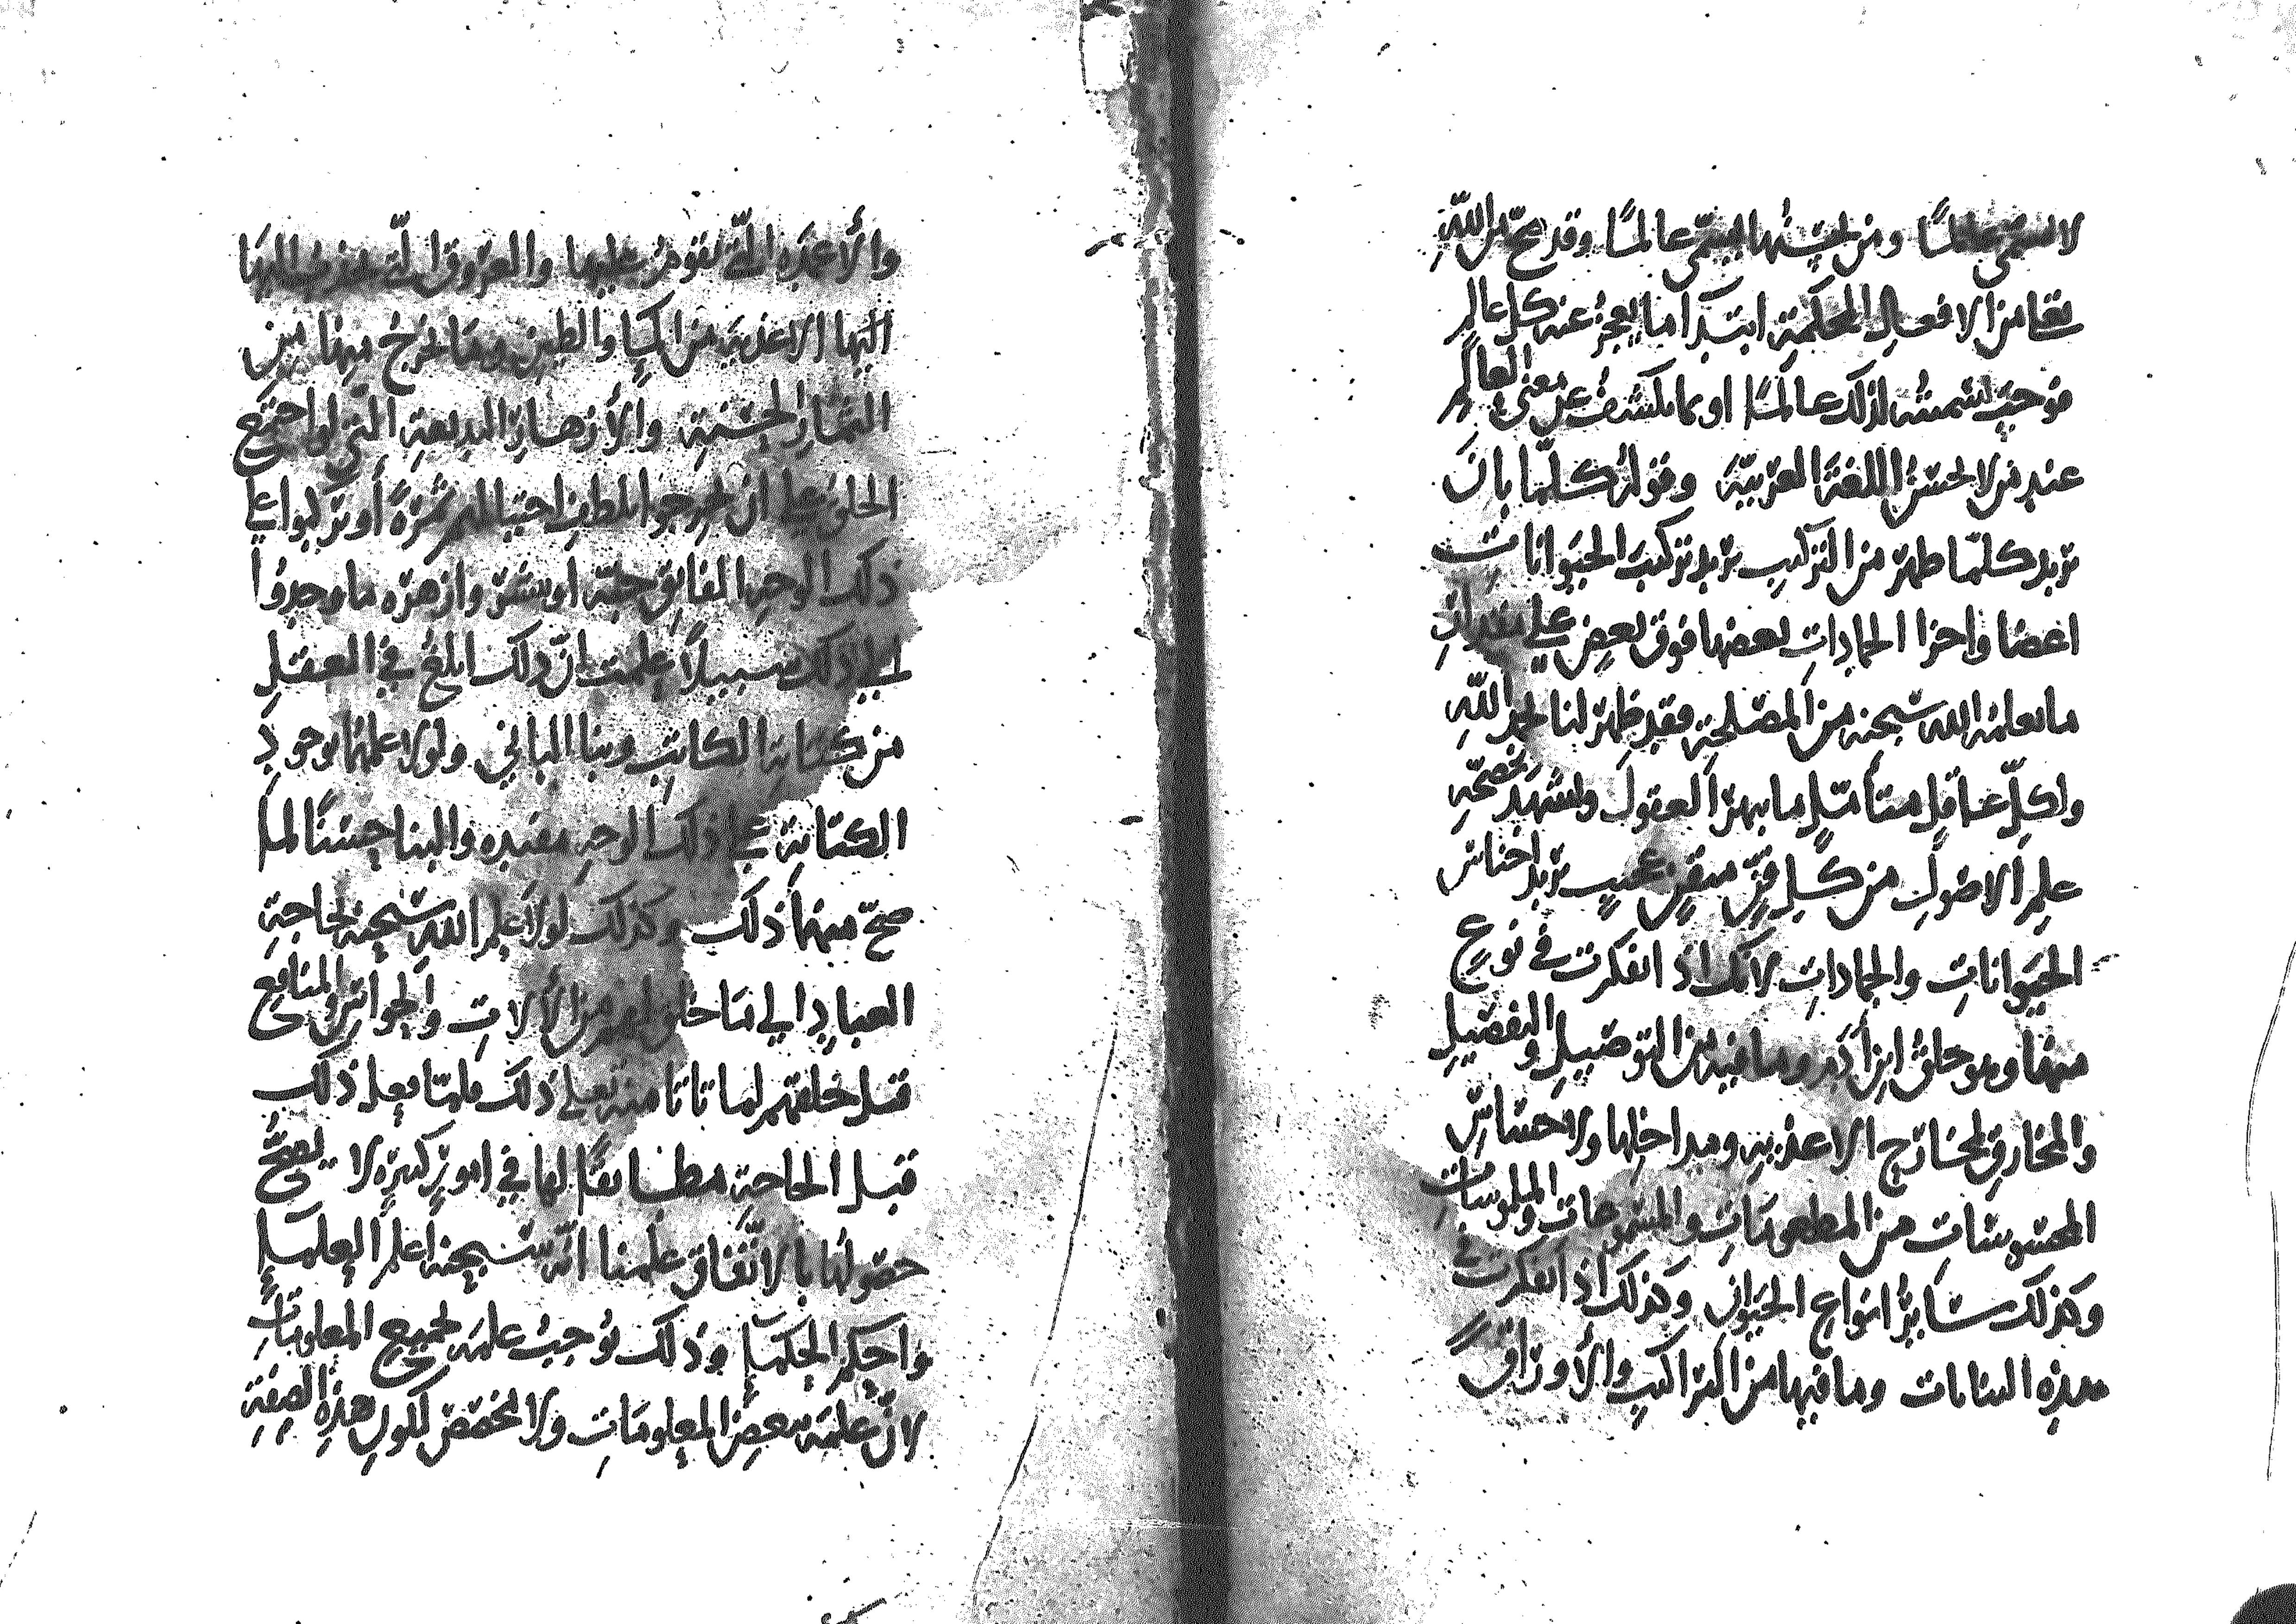 لا يسمى عالمًا ومن يحسنها يسمى عالمًا وقد صحّ من الله
تعا من الافعال المحكمة ابتدآ ما يعجز عنه كل عالم
فوجب تسميته لذلك عالمًا او بما يكشف عن معنى العالم
عند من لا يحسن اللغة العربيّة وقوله كلّما بان
يريد كلّما ظهر من التركيب يريد تركيب الحيوانات
اعضا واجزا الجمادات بعضها فوق بعض على
ما يعلمه الله سبحنه من المصلحة فقد ظهر لنا بحمد الله
ولكلّ عاقل متأمّل ما بهر العقول وشهد بصحّة
علم الاصول من كل فنّ متقن عجيب يريد اجناس
الحيوانات والجمادات لانك اذ انفكرت في نوع
منها وهو خلق ابن أدم وما فيه من التوصيل والتفصيل
والمخارق لمخارج الاغذيه ومداخلها ولاحساس
المحسوسات من المطعومات والمشمومات والملموسات
وكذلك سائر انواع الحيوان وكذلك اذ انفكرت في
هذه النباتات وما فيها من التراكيب والأوراق
والأعمده الّتي تقوم عليها والعروق الّتي
اليها الاغذية من المآ والطين وما يخرج منها من
الثمار الجنية والأزهار البديعة التي لو اجتمع
الخلق على ان يخرجوا بلطف احتيالهم ثمرة أو يركبوا على
ذلك الوجه الفايق حبّه او بسرة وازهره ما وجدوا
الى ذلك سبيلاً علمت انّ ذلك ابلغ في العقل
من كتابة الكاتب وبنا الباني ولولا علمهما بوجود
الكتابة على ذلك الوجه مفيده والبنا حسنًا لما
صحّ منهما ذلك وكذلك لولا علم الله سبحنه بحاجة
العباد الى ما خلق لهم من الألات والجوارح والمنافع
قبل خلقهم لما تاتا منه تعلى ذلك فلمّا فعل ذلك
قبل الحاجة مطابقًا لها في امور كثيرة لا يصحّ
حصولها بالاتّفاق علمنا انّه سبحنه اعلم العلمآ
واحكم الحكمآ وذلك يوجب علمه بجميع المعلومات
لانّ علمه ببعض المعلومات ولا مخصص لكون هذه الصفة